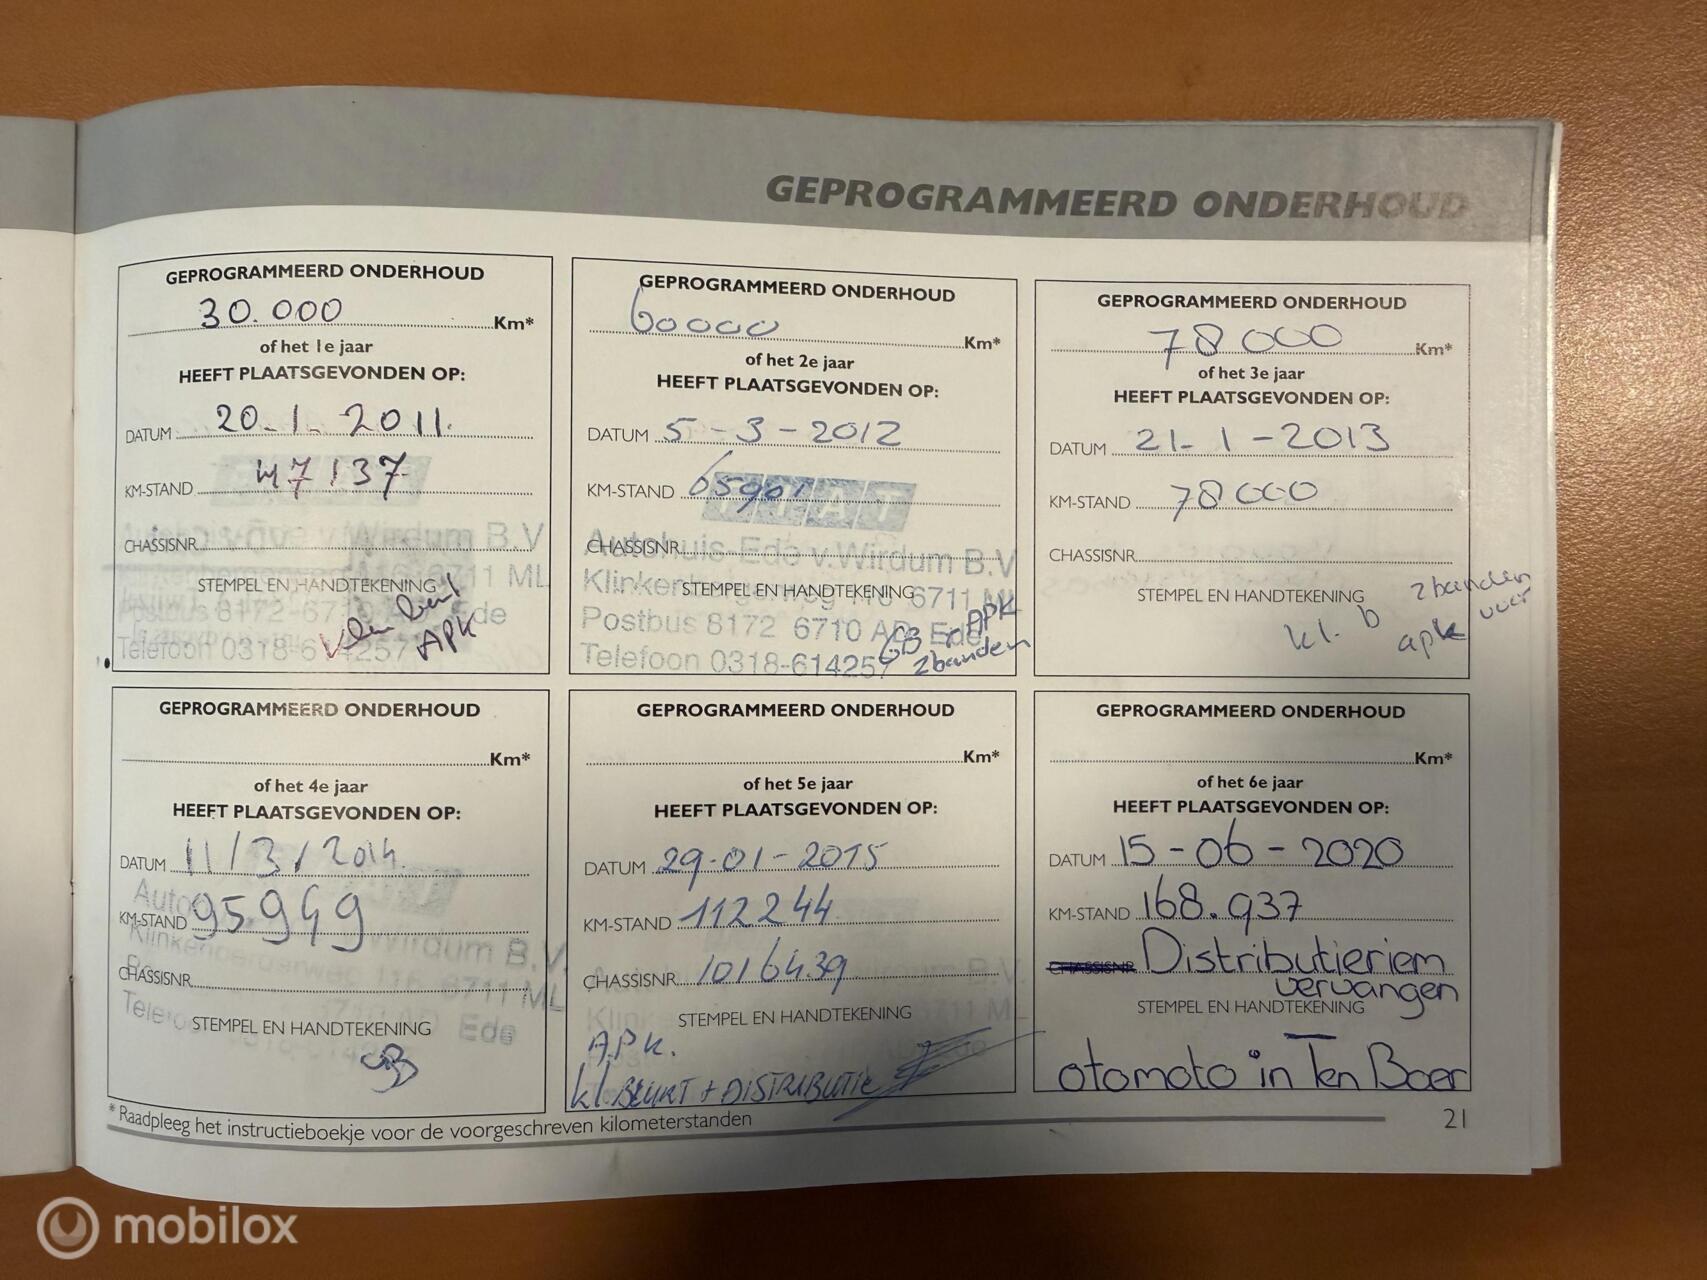 GEPROGRAMMEERD ONDERHOUD
GEPROGRAMMEERD ONDERHOUD
30.000 Km*
of het 1e jaar
HEEFT PLAATSGEVONDEN OP:
DATUM 20-1-2011
KM-STAND 47137
CHASSISNR.
v. Wirdum B.V
STEMPEL EN HANDTEKENING
6711 ML
Postbus 8172 6710 Ede
Telefoon 0318-614257
APK
GEPROGRAMMEERD ONDERHOUD
60000 Km*
of het 2e jaar
HEEFT PLAATSGEVONDEN OP:
DATUM 5-3-2012
KM-STAND 65901
FIAT
CHASSISNR.
Autohuis Ede v. Wirdum B.V
STEMPEL EN HANDTEKENING
Klinkenbergerweg 116 6711 ML
Postbus 8172 6710 AD Ede
Telefoon 0318-614257
GB + APK
2banden
GEPROGRAMMEERD ONDERHOUD
78000 Km*
of het 3e jaar
HEEFT PLAATSGEVONDEN OP:
DATUM 21-1-2013
KM-STAND 78000
CHASSISNR.
STEMPEL EN HANDTEKENING
kl. b
2banden
voor
apk
GEPROGRAMMEERD ONDERHOUD
Km*
of het 4e jaar
HEEFT PLAATSGEVONDEN OP:
DATUM 11/3/2014
KM-STAND 95949
Wirdum B.V.
CHASSISNR.
6711 ML
STEMPEL EN HANDTEKENING
Ede
GB
GEPROGRAMMEERD ONDERHOUD
Km*
of het 5e jaar
HEEFT PLAATSGEVONDEN OP:
DATUM 29-01-2015
KM-STAND 112244
CHASSISNR. 1016439
STEMPEL EN HANDTEKENING
APK.
kl. BEURT + DISTRIBUTIE
GEPROGRAMMEERD ONDERHOUD
Km*
of het 6e jaar
HEEFT PLAATSGEVONDEN OP:
DATUM 15-06-2020
KM-STAND 168.937
CHASSISNR. Distributieriem
vervangen
STEMPEL EN HANDTEKENING
otomoto in Ten Boer
* Raadpleeg het instructieboekje voor de voorgeschreven kilometerstanden
21
mobilox